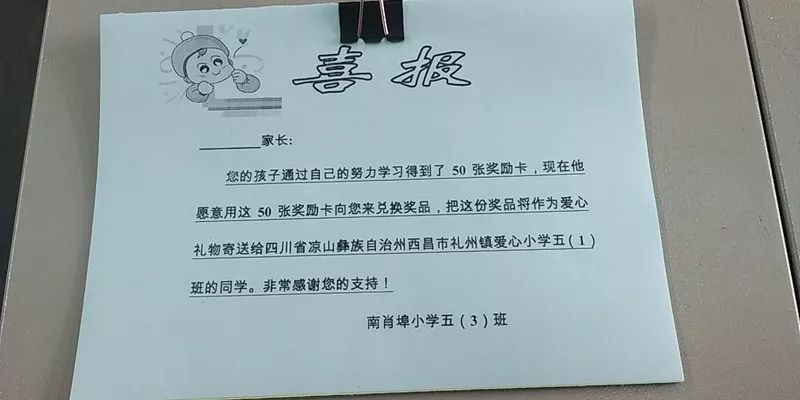 喜报
________家长：
您的孩子通过自己的努力学习得到了 50 张奖励卡，现在他
愿意用这 50 张奖励卡向您来兑换奖品，把这份奖品将作为爱心
礼物寄送给四川省凉山彝族自治州西昌市礼州镇爱心小学五(1)
班的同学。非常感谢您的支持！
南肖埠小学五(3)班